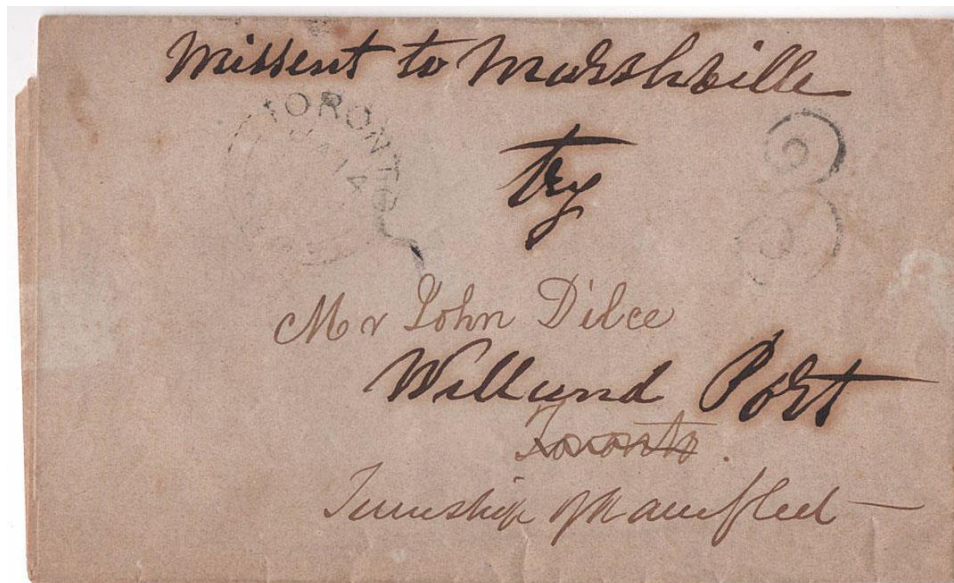 Missent to Marshville
TORONTO
14
try
Mr John Dilce
Welland Port
Toronto.
Township of